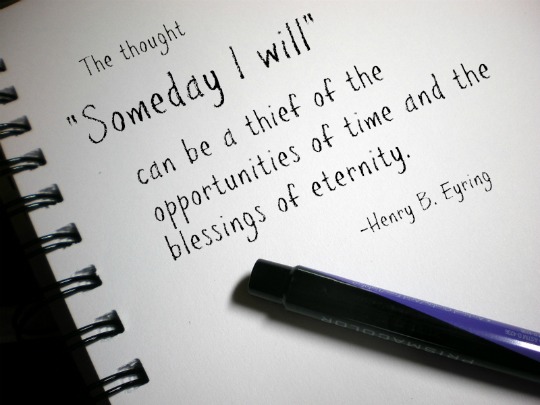 The thought
"Someday I will"
can be a thief of the
opportunities of time and the
blessings of eternity.
-Henry B. Eyring
PRISMACOLOR